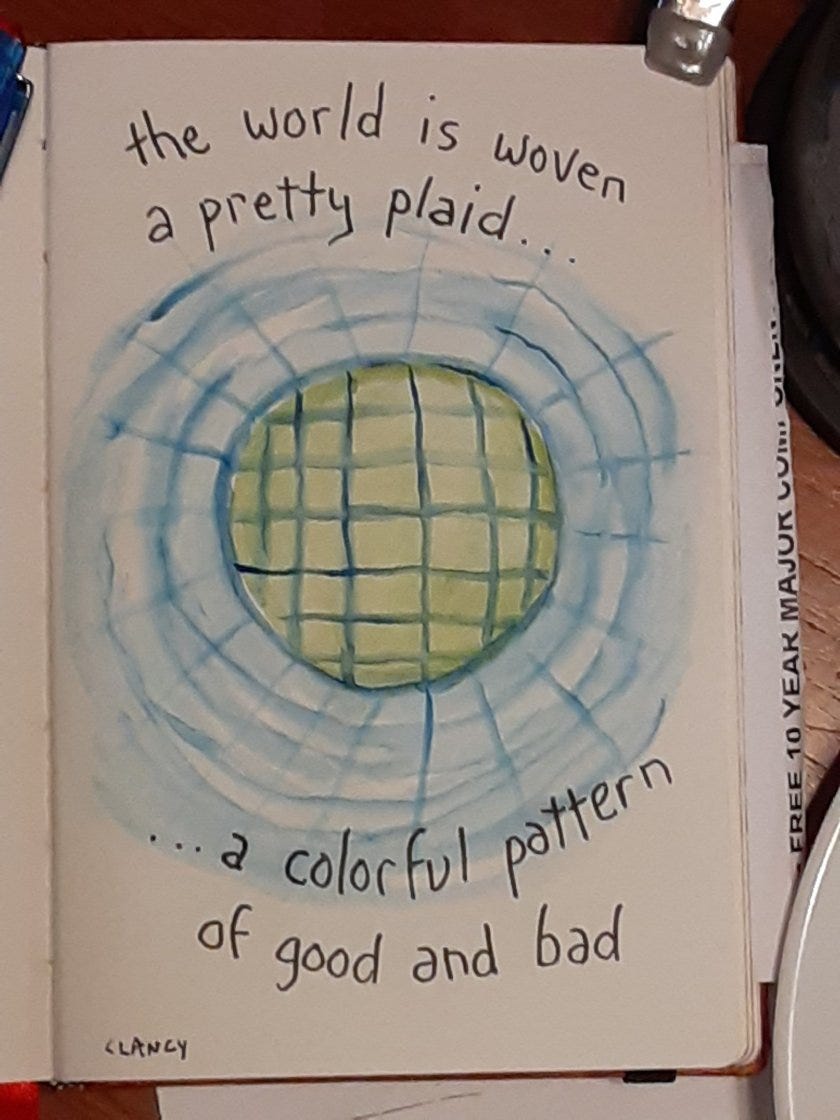 the world is woven
a pretty plaid...
...a colorful pattern
of good and bad
CLANCY
FREE 10 YEAR MAJOR